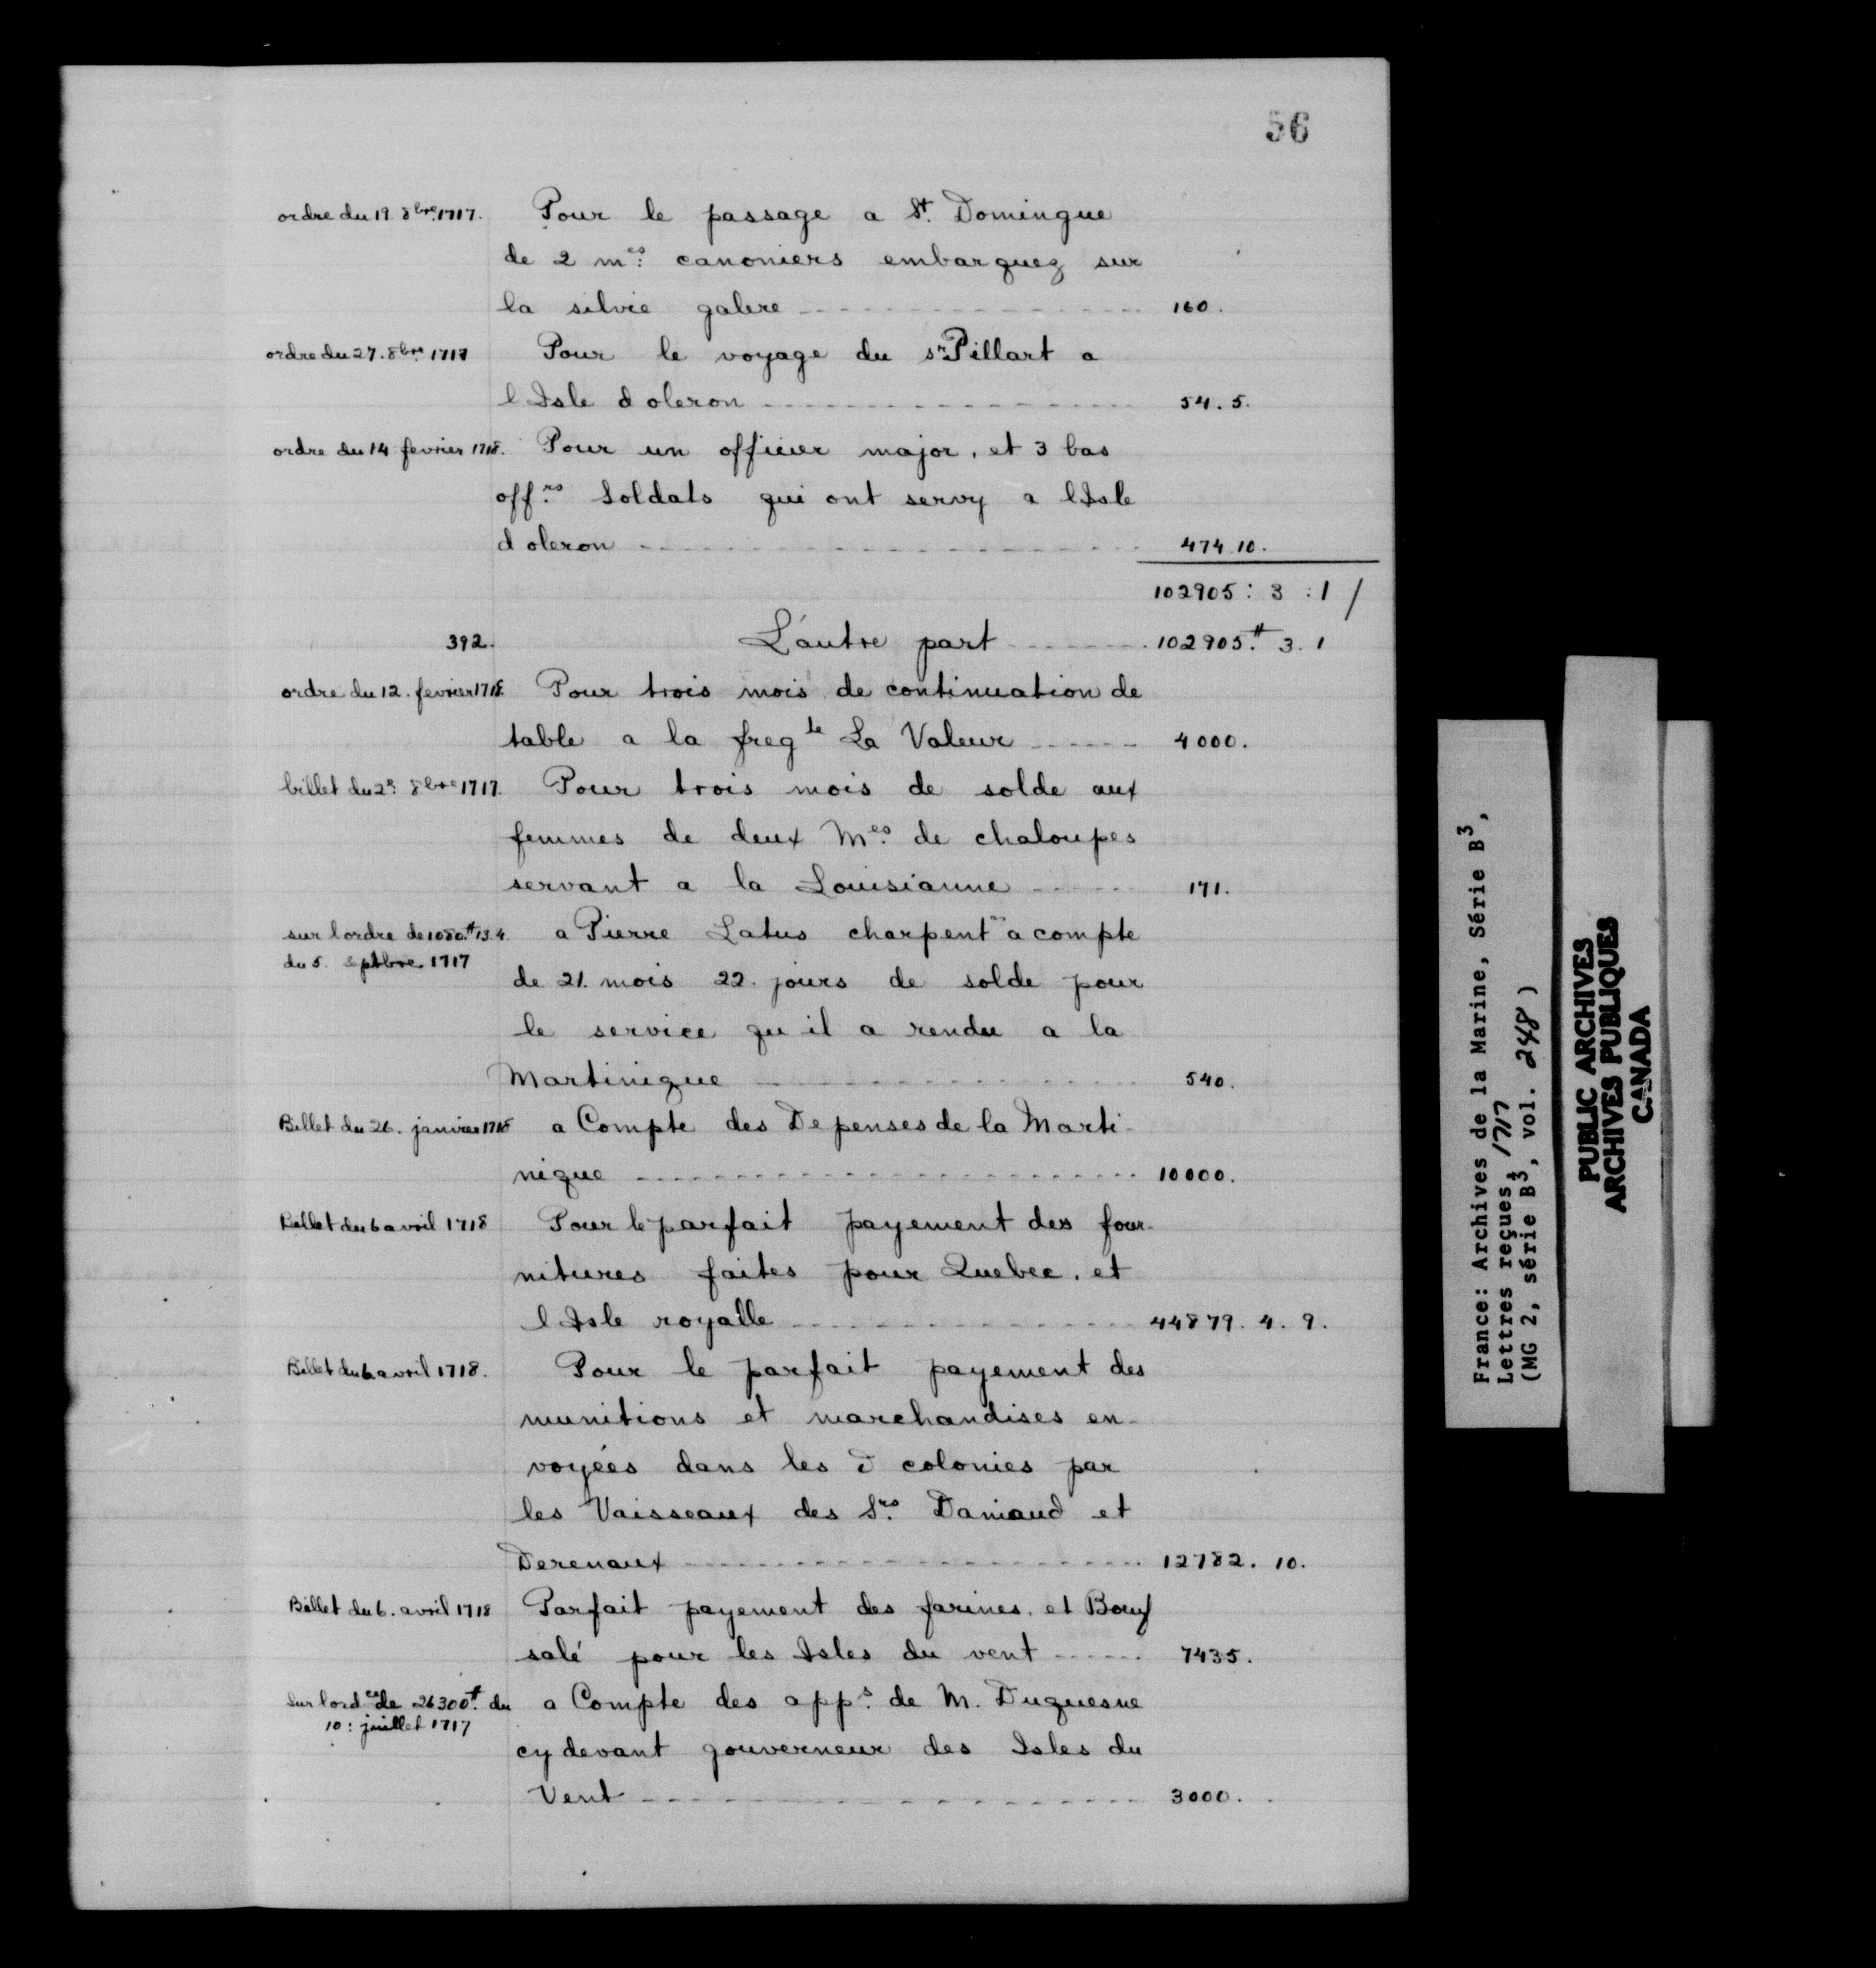 56
ordre du 19. 8bre 1717. Pour le passage a St. Domingue
de 2 mes: canoniers embarquez sur
la silvie galere 160.
ordre du 27. 8bre 1717 Pour le voyage du sr Pillart a
l Isle d oleron 54. 5.
ordre du 14 fevrier 1718. Pour un officier major, et 3 bas
offrs. Soldats qui ont servy a l Isle
d oleron 474. 10.
102905 : 3 : 1 /
392. L'autre part 102905.# 3. 1
ordre du 12. fevrier 1718. Pour trois mois de continuation de
table a la fregte La Valeur 4000.
billet du 2e: 8bre 1717. Pour trois mois de solde aux
femmes de deux Mes. de chaloupes
servant a la Louisianne 171.
sur l ordre de 1080.# 13. 4. a Pierre Latus charpent a compte
du 5. septbre 1717
de 21. mois 22. jours de solde pour
le service qu il a rendu a la
Martinique 540.
Billet du 26. janvier 1718 a Compte des Depenses de la Marti-
nique 10000.
Billet du 6 avril 1718 Pour le parfait payement des four-
nitures faites pour Quebec, et
l Isle royalle 44879. 4. 9.
Billet du 6. avril 1718. Pour le parfait payement des
munitions et marchandises en-
voyées dans les d colonies par
les Vaisseaux des Srs. Daniaud et
Derenaux 12782. 10.
Billet du 6. avril 1718 Parfait payement des farines, et Boeuf
salé pour les Isles du vent 7435.
Sur lordce de 26300.# du a Compte des apps. de M. Duquesne
10: juillet 1717
cy devant gouverneur des Isles du
Vent 3000.
France: Archives de la Marine, Série B3,
Lettres reçues, 1717
(MG 2, série B3, vol. 248)
PUBLIC ARCHIVES
ARCHIVES PUBLIQUES
CANADA